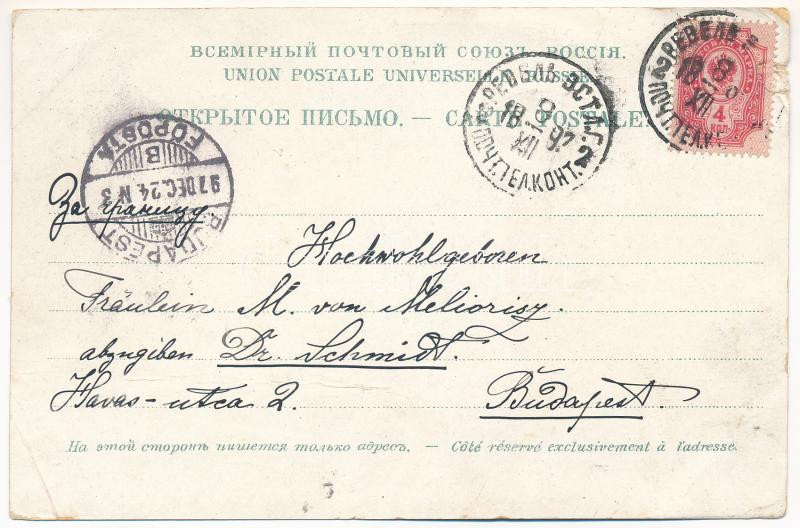 ВСЕМІРНЫЙ ПОЧТОВЫЙ СОЮЗЪ. РОССІЯ.
UNION POSTALE UNIVERSELLE. RUSSIE.
ОТКРЫТОЕ ПИСЬМО. — CARTE POSTALE.
РЕВЕЛЬ ЭСТЛ. Г. 2
18 8 XII 97
ПОЧТ. ТЕЛ. КОНТ.
РЕВЕЛЬ
18 8 XII
ПОЧТ. ТЕЛ. К
4
BUDAPEST
97 DEC. 24 N 3
B
FŐPOSTA
За границу
Hochwohlgeboren
Fräulein M. von Meliorisz.
abzugiben Dr. Schmidt.
Havas-utca 2. Budapest.
На этой сторонѣ пишется только адресъ. — Côté réservé exclusivement à l'adresse.